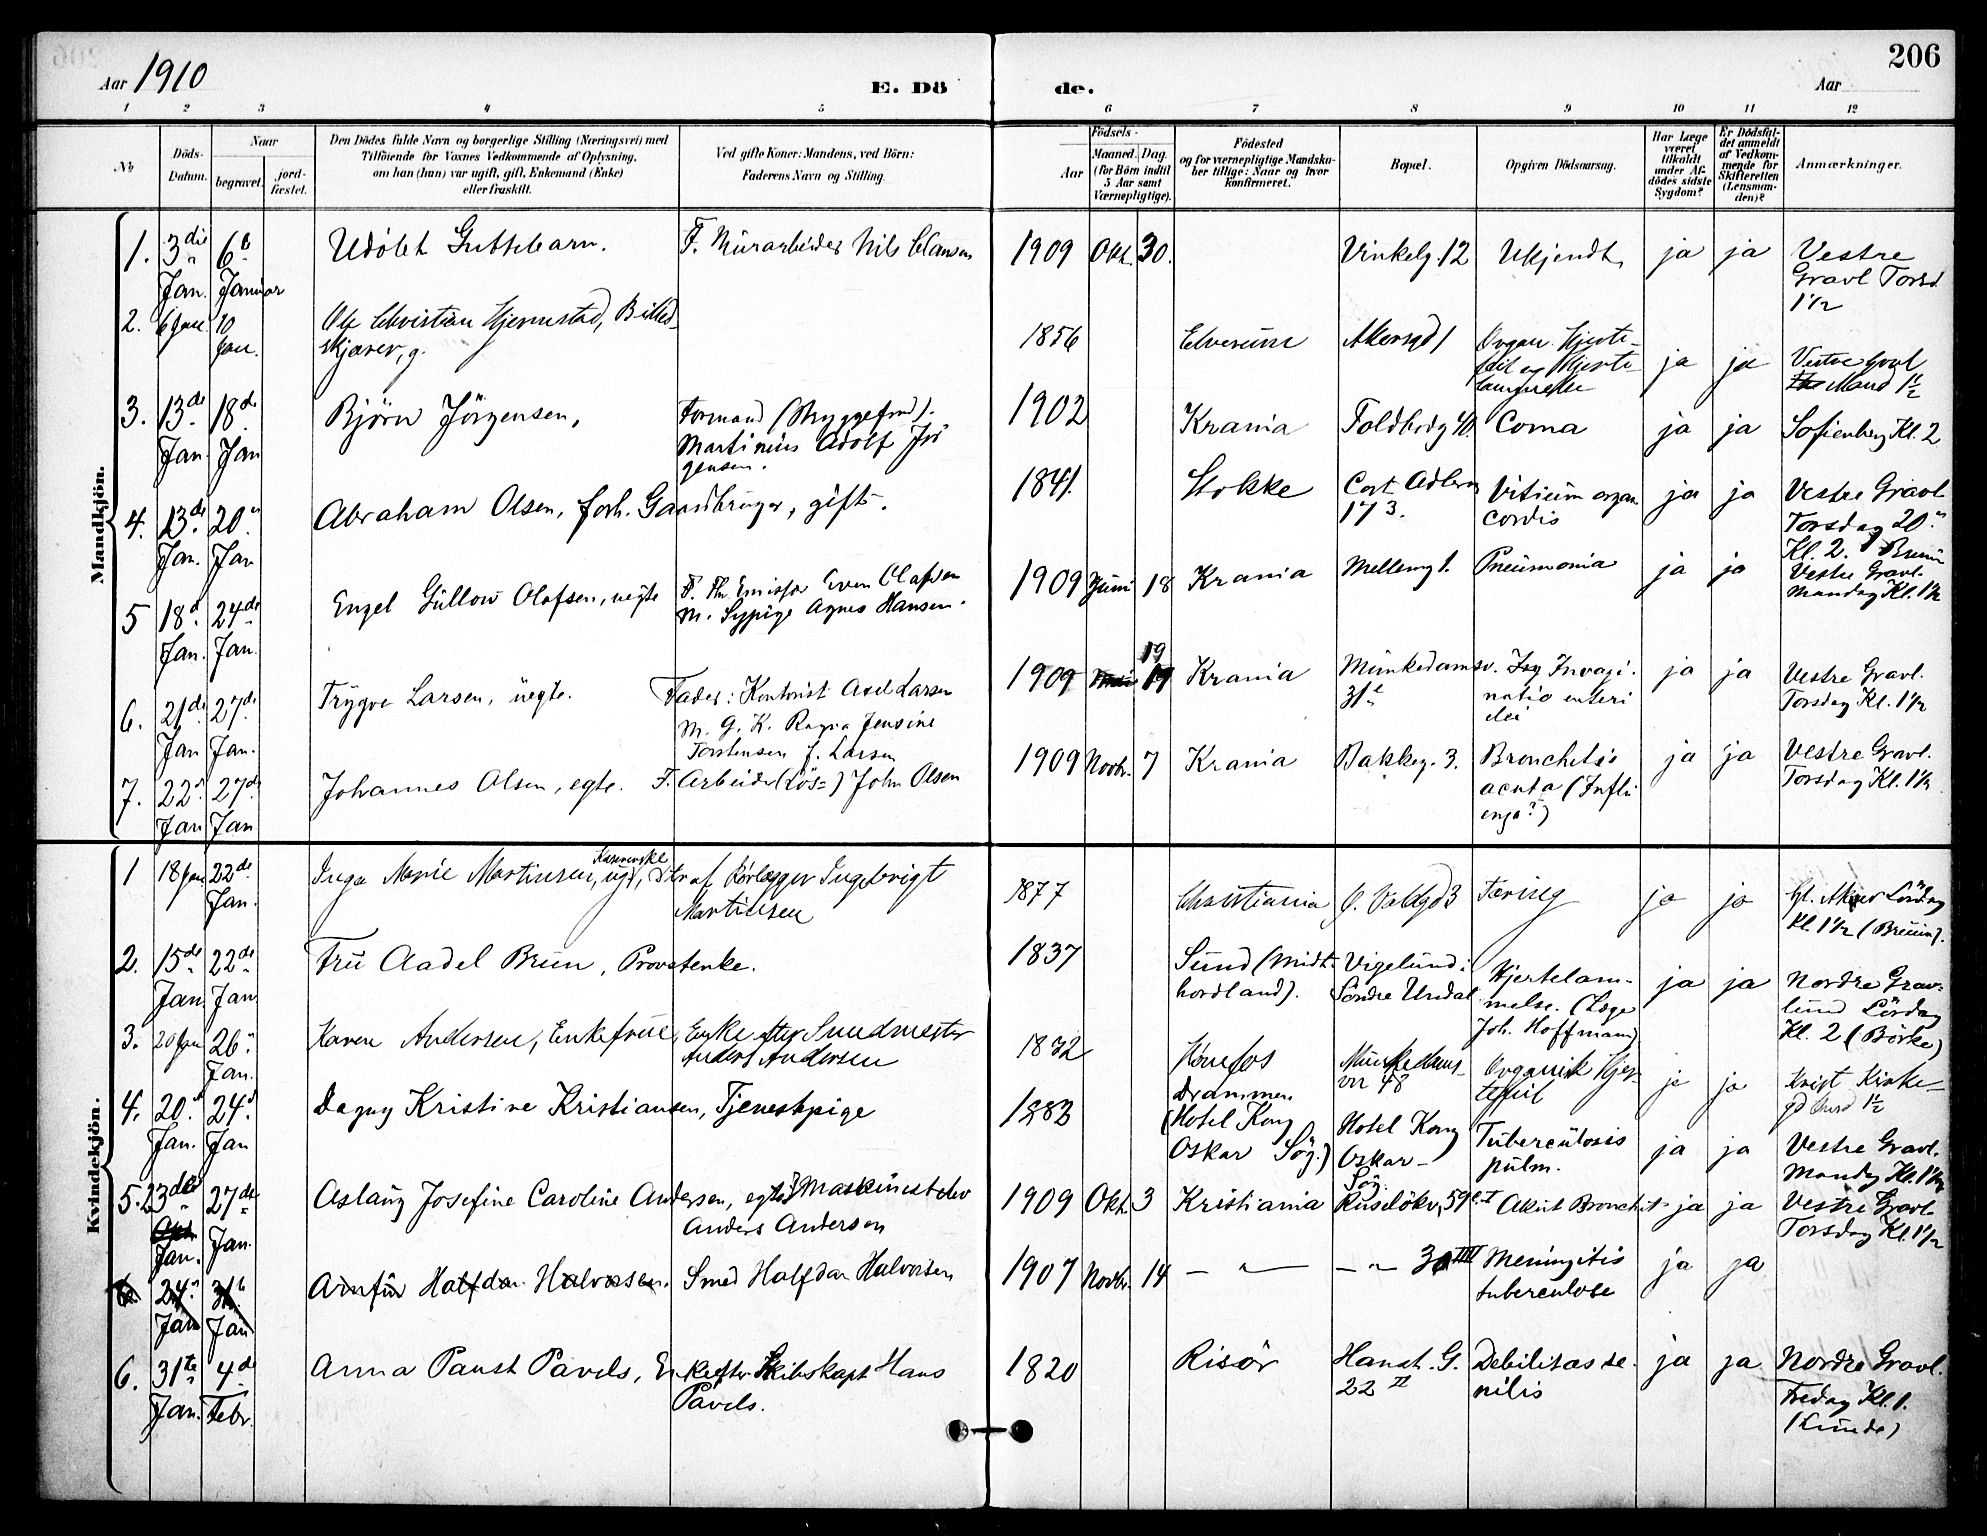 206
Aar 1910
E. Dö
de.
Aar
1 2 3 4 5 6 7 8 9 10 11 12
No
Döds-
Datum.
Naar
begravet.
jord-
fæstet.
Den Dödes fulde Navn og borgerlige Stilling (Næringsvei) med
Tilföiende for Voxnes Vedkommende af Oplysning,
om han (hun) var ugift, gift, Enkemand (Enke)
eller fraskilt.
Ved gifte Koner: Mandens, ved Börn:
Faderens Navn og Stilling.
Födsels-
Aar
Maaned. Dag.
(for Börn indtil
5 Aar samt
Værnepligtige).
Födested
og for værnepligtige Mandska-
ber tillige: Naar og hvor
konfirmeret.
Bopæl.
Opgiven Dödsaarsag.
Har Læge
været
tilkaldt
under Af-
dödes sidste
Sygdom?
Er Dödsfal-
det anmeldt
af Vedkom-
mende for
Skifteretten
(Lensman-
den)?
Anmærkninger.
Mandkjön.
1. 3die Jan. 6te Januar
Udöbt Guttebarn.
F. Murarbeider Nils Clausen
1909 Okt. 30.
Vinkelg. 12
Ukjendt
ja ja
Vestre
Gravl Torsd
1½
2. 6 Jan 10 Jan.
Ole Christian Hjernstad, Billed-
skjærer, g.
1856
Elverum
Akersgd 1
Organ. Hjerte-
feil og Hjerte-
lammelse
ja ja
Vestre Gravl
Mand 1½
3. 13de Jan. 18de Jan
Björn Jörgensen,
Formand (Bryggefmd).
Martinius Adolf Jör
gensen.
1902
Krania
Toldbodg 40.
Coma
ja ja
Sofienberg Kl. 2
4. 13de Jan. 20 Jan
Abraham Olsen, forh. Gaardbruger, gift.
1841.
Stokke
Cort Adlers
17 3.
Vitium organ
cordis
ja ja
Vestre Gravl
Torsdag 20.
Kl. 2. Bruun
5 18d Jan. 24de Jan.
Engel Güllow Olafsen, uegte
F. Emissær Even Olafsen
M. Sypige Agnes Hansen.
1909 Juni 18
Krania
Mellemg 1.
Pneumonia
ja ja
Vestre Gravl.
Mandag Kl. 1½
6. 21de Jan 27de Jan.
Trygve Larsen, uegte.
Fader: Kontorist Axel Larsen
M. G. K. Ragna Jensine
Torstensen f. Larsen
1909 19
19
Krania
Munkedamsv.
31
Invagi-
natio enteri
ilei
ja ja
Vestre Gravl.
Torsdag Kl. 1½
7. 22d Jan 27de Jan
Johannes Olsen, egte.
F. Arbeider (Lös-) John Olsen
1909 Novbr. 7
Krania
Bakkeg. 3.
Bronchitis
acuta (Influ
enza?)
ja ja
Vestre Gravl.
Torsdag Kl. 1½
Kvindekjön.
1 18 Jan 22de Jan.
Inga Marie Martinsen, ug, Dtr af Rörlægger Ingebrigt
Martinsen
1877
Christiania
Ø. Voldgd 3
Tæring
ja ja
Gl. Aker Lördag
Kl. 1½ (Bruun).
2. 15de Jan. 22de Jan
Fru Aadel Brun, Provstenke.
1837
Sund (Midt-
hordland).
Vigelund i
Söndre Undal
Hjertelam-
melse. (Læge
Joh. Hoffmann)
ja ja
Nordre Grav-
lund Lördag
Kl. 2 (Börke)
3. 20 Jan 26. Jan.
Karen Andersen, Enkefrue, Enke efter
Anders Andersen
1832
Hönefos
Munkedams-
vn 48
Organisk Hjer-
tefeil
ja ja
Krist Kirke-
gd Onsd 1½
4. 20. Jan. 24d Jan
Dagny Kristine Kristiansen, Tjenestpige
1883
Drammen
(Hotel Kong
Oskar Sög.)
Hotel Kong
Oskar-
Sög.
Tuberculosis
pulm.
ja ja
Vestre Gravl.
Mandag Kl. 1½
5. 23de Jan. 27de Jan.
Aslaug Josefine Caroline Andersen, egte, Maskinistelev
Anders Andersen
1909 Okt. 3
Kristiania
Ruselökv. 59
Akut Bronchit
ja ja
Vestre Gravl.
Torsdag Kl. 1½
6. 24. Jan 31. Jan
Arnfin Halfdan Halvorsen. Smed Halfdan Halvorsen
1907 Novbr. 14
— " —
— " 30 III
Meningitis
tuberculose
ja ja
6. 31te Jan. 4de Febr.
Anna Paust Pavels, Enke efter Skibskapt Hans
Pavels.
1820
Risör
Hanst. G.
22 II
Debilitas se-
nilis
ja ja
Nordre Gravl.
Fredag Kl. 1.